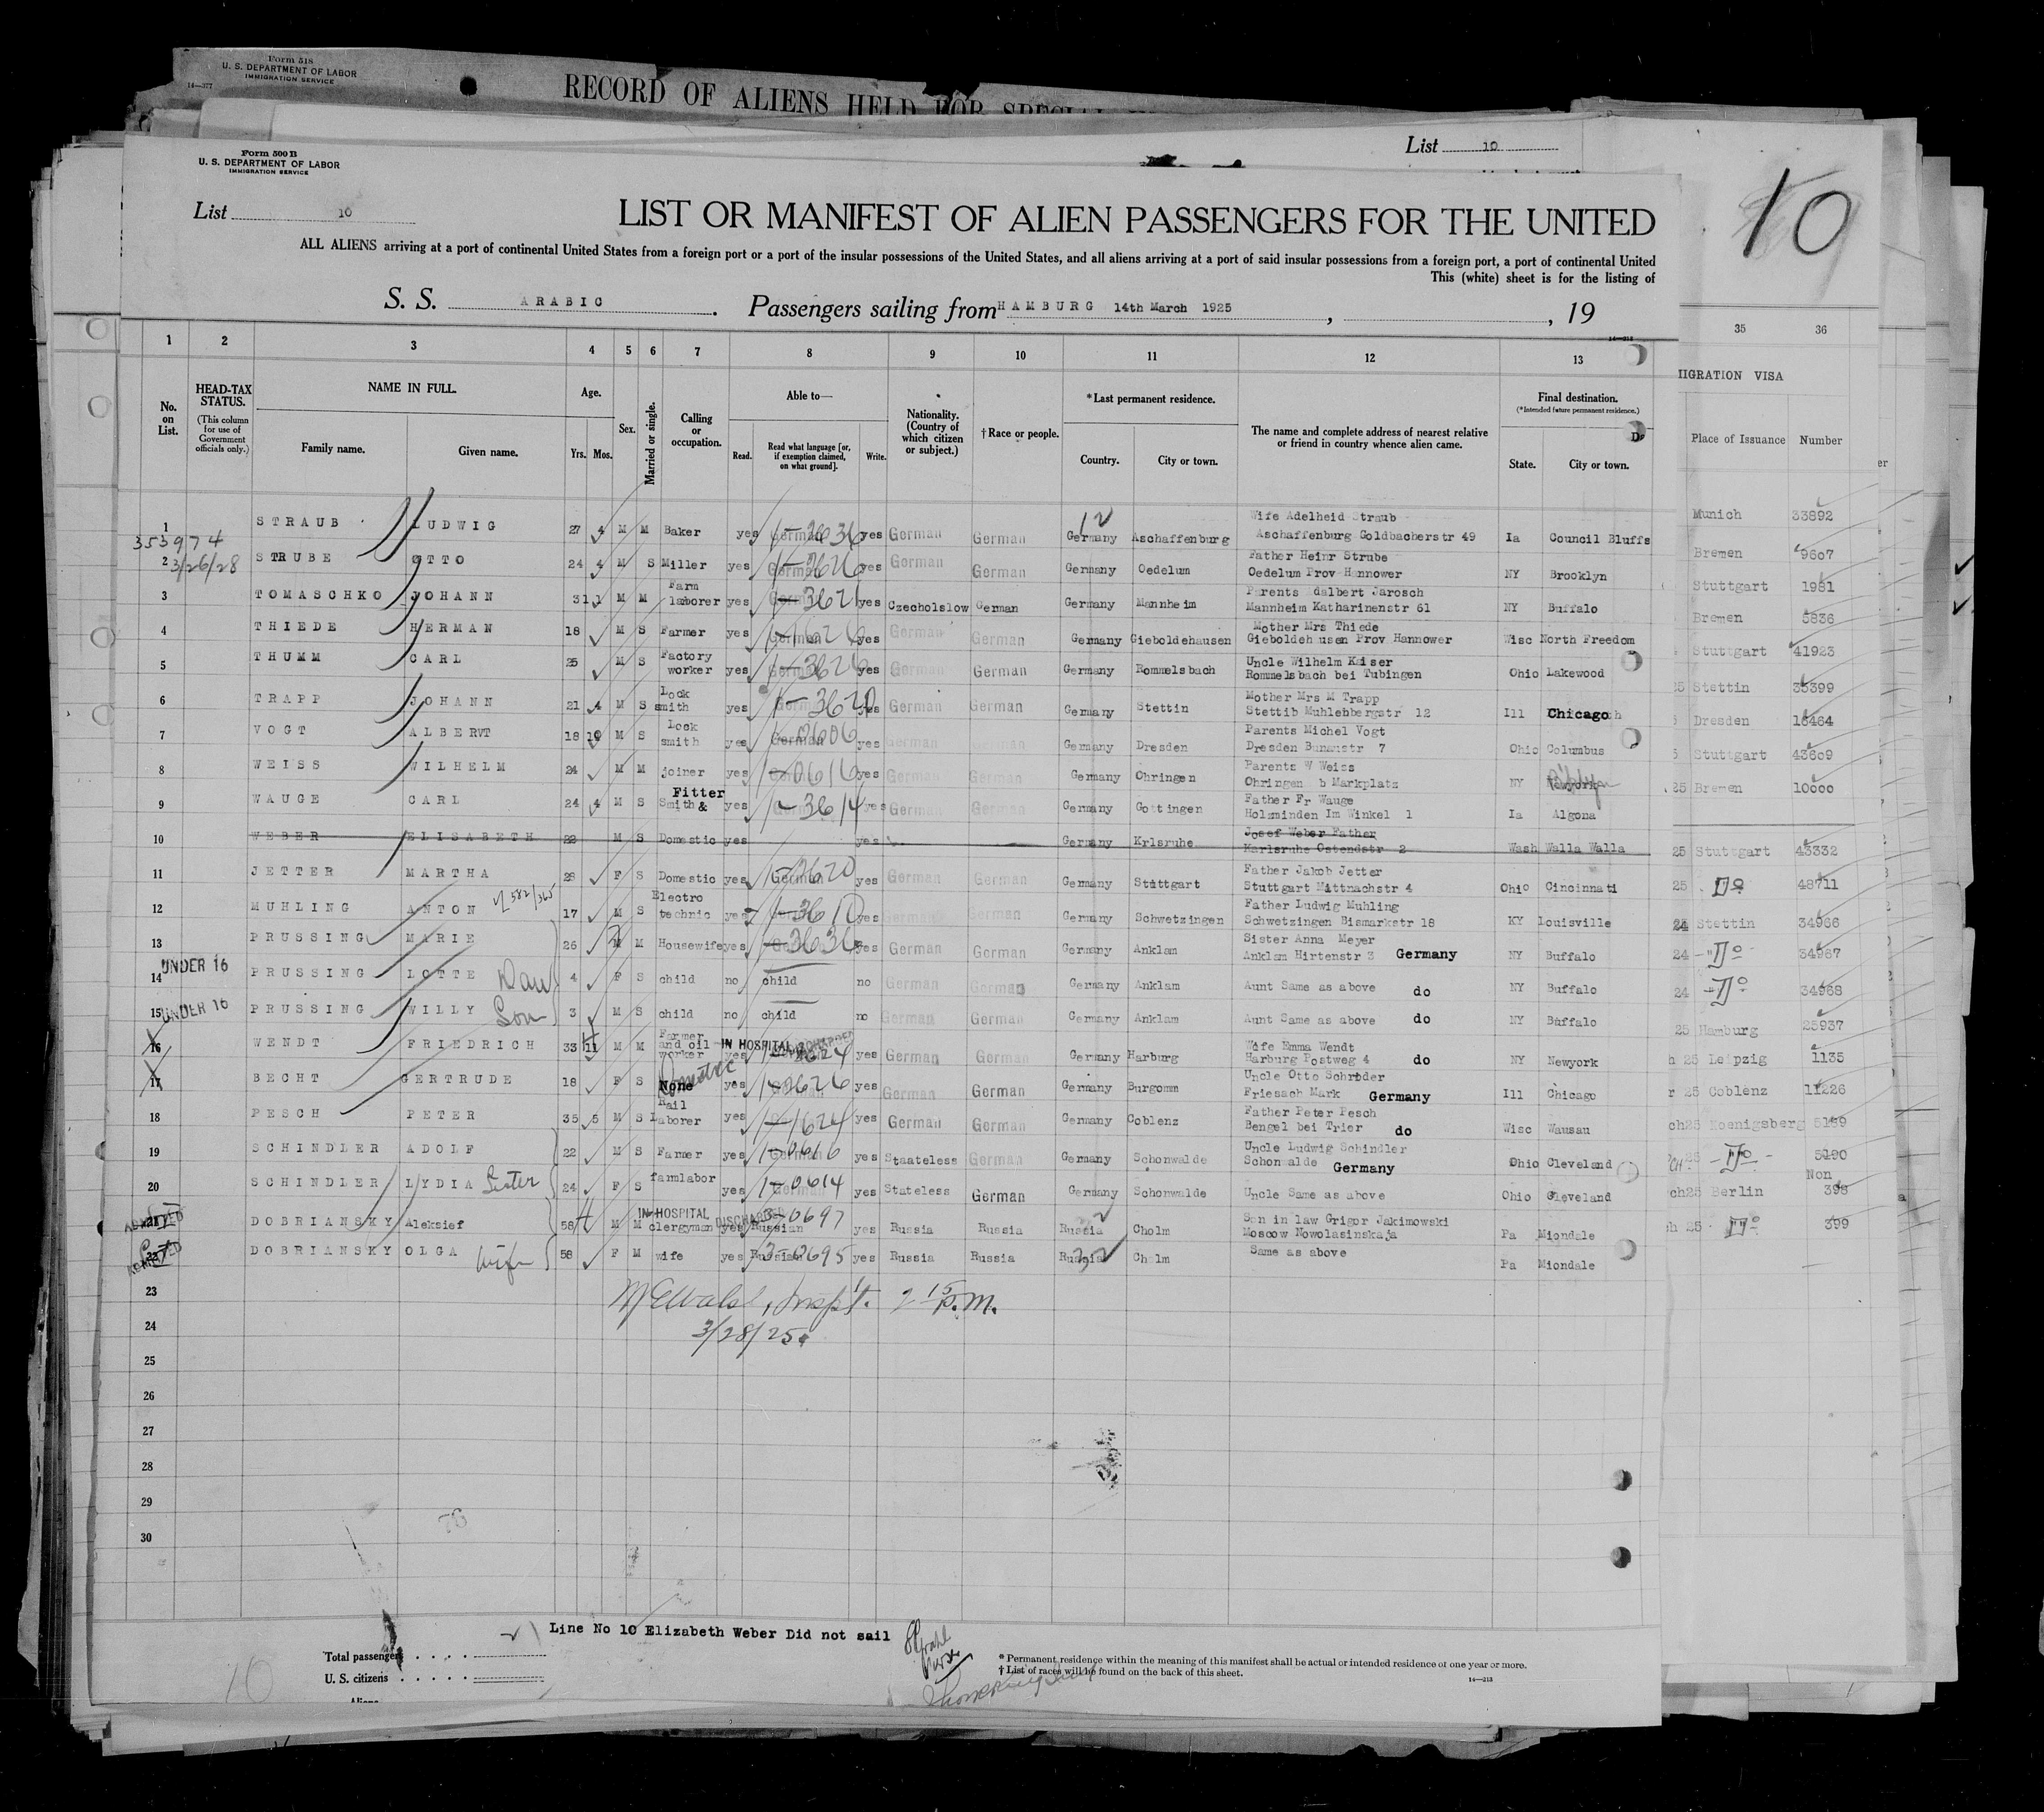 Form 518
U. S. DEPARTMENT OF LABOR
IMMIGRATION SERVICE
14—377
RECORD OF ALIENS HELD FOR SPECIAL
List 10
Form 500 B
U. S. DEPARTMENT OF LABOR
IMMIGRATION SERVICE
List 10
10
LIST OR MANIFEST OF ALIEN PASSENGERS FOR THE UNITED
ALL ALIENS arriving at a port of continental United States from a foreign port or a port of the insular possessions of the United States, and all aliens arriving at a port of said insular possessions from a foreign port, a port of continental United
This (white) sheet is for the listing of
S. S. ARABIC. Passengers sailing from HAMBURG 14th March 1925, , 19
1 2 3 4 5 6 7 8 9 10 11 12 13 35 36
No. on List. HEAD-TAX STATUS. (This column for use of Government officials only.) NAME IN FULL. Family name. Given name. Age. Yrs. Mos. Sex. Married or single. Calling or occupation. Able to— Read. Read what language [or, if exemption claimed, on what ground]. Write. Nationality. (Country of which citizen or subject.) † Race or people. *Last permanent residence. Country. City or town. The name and complete address of nearest relative or friend in country whence alien came. Final destination. (*Intended future permanent residence.) State. City or town.
MIGRATION VISA
Place of Issuance Number
1 STRAUB LUDWIG 27 4 M M Baker yes German yes German German Germany Aschaffenburg Wife Adelheid Straub Aschaffenburg Goldbacherstr 49 Ia Council Bluffs
353974
3/26/28
2 STRUBE OTTO 24 4 M S Miller yes German yes German German Germany Oedelum Father Heinr Strube Oedelum Prov Hannower NY Brooklyn
3 TOMASCHKO JOHANN 31 1 M M Farm laborer yes German yes Czecholslow German Germany Mannheim Parents Adalbert Jarosch Mannheim Katharinenstr 61 NY Buffalo
4 THIEDE HERMAN 18 M S Farmer yes German yes German German Germany Gieboldehausen Mother Mrs Thiede Gieboldeh usen Prov Hannower Wisc North Freedom
5 THUMM CARL 25 M S Factory worker yes German yes German German Germany Rommelsbach Uncle Wilhelm Kaiser Rommelsbach bei Tubingen Ohio Lakewood
6 TRAPP JOHANN 21 4 M S Lock smith yes German yes German German Germany Stettin Mother Mrs M Trapp Stettib Muhlebbergstr 12 Ill Chicago
7 VOGT ALBERVT 18 10 M S Lock smith yes German yes German German Germany Dresden Parents Michel Vogt Dresden Bunaustr 7 Ohio Columbus
8 WEISS WILHELM 24 M M joiner yes German yes German German Germany Ohringen Parents W Weiss Ohringen b Markplatz NY
9 WAUGE CARL 24 4 M S Smith & Fitter yes German yes German German Germany Gottingen Father Fr Wauge Holzminden Im Winkel 1 Ia Algona
10 WEBER ELISABETH 22 M S Domestic yes yes Germany Krlsruhe Josef Weber Father Karlsruhe Ostendstr 2 Wash Walla Walla
11 JETTER MARTHA 28 F S Domestic yes German yes German German Germany Stuttgart Father Jakob Jetter Stuttgart Mittnachstr 4 Ohio Cincinnati
12 MUHLING ANTON 17 M S Electro technic yes German yes German German Germany Schwetzingen Father Ludwig Muhling Schwetzingen Bismarkstr 18 KY Louisville
13 PRUSSING MARIE 26 M M Housewife yes German yes German German Germany Anklam Sister Anna Meyer Anklam Hirtenstr 3 Germany NY Buffalo
UNDER 16
14 PRUSSING LOTTE Dau 4 F S child no child no German German Germany Anklam Aunt Same as above do NY Buffalo
UNDER 16
15 PRUSSING WILLY Son 3 M S child no child no German German Germany Anklam Aunt Same as above do NY Buffalo
16 WENDT FRIEDRICH 33 11 M M Farmer and oil worker IN HOSPITAL DISCHARGED yes German yes German German Germany Harburg Wife Emma Wendt Harburg Postweg 4 do NY Newyork
17 BECHT GERTRUDE 18 F S None Domestic yes German yes German German Germany Burgomm Uncle Otto Schroder Friesach Mark Germany Ill Chicago
18 PESCH PETER 35 5 M S Rail Laborer yes yes German German Germany Coblenz Father Peter Pesch Bengel bei Trier do Wisc Wausau
19 SCHINDLER ADOLF 22 M S Farmer yes German yes Staateless German Germany Schonwalde Uncle Ludwig Schindler Schonwalde Germany Ohio Cleveland
20 SCHINDLER LYDIA Sister 24 F S farmlabor yes German yes Stateless German Germany Schonwalde Uncle Same as above Ohio Cleveland
21 ADMITTED DOBRIANSKY Aleksief 58 M M IN HOSPITAL DISCHARGED clergyman yes Russian yes Russia Russia Russia Cholm Son in law Grigor Jakimowski Moscow Nowolasinskaja Pa Miondale
22 ADMITTED DOBRIANSKY OLGA wife 58 F M wife yes Russian yes Russia Russia Russia Cholm Same as above Pa Miondale
23
24
25
26
27
28
29
30
Inspt. 2 15 P.M.
3/28/25
Munich 33892
Bremen 9607
Stuttgart 1981
Bremen 5836
Stuttgart 41923
25 Stettin 35399
Dresden 16464
Stuttgart 43609
25 Bremen 10600
25 Stuttgart 43332
25 Do 48711
24 Stettin 34966
24 Do 34967
24 Do 34968
25 Hamburg 25937
h 25 Leipzig 1135
r 25 Coblenz 11226
ch25 Koenigsberg 5189
Do 5190
Non
ch25 Berlin 398
h 25 Do 399
Line No 10 Elizabeth Weber Did not sail
Total passengers
U. S. citizens
Aliens
10
* Permanent residence within the meaning of this manifest shall be actual or intended residence or one year or more.
† List of races will be found on the back of this sheet.
14—213